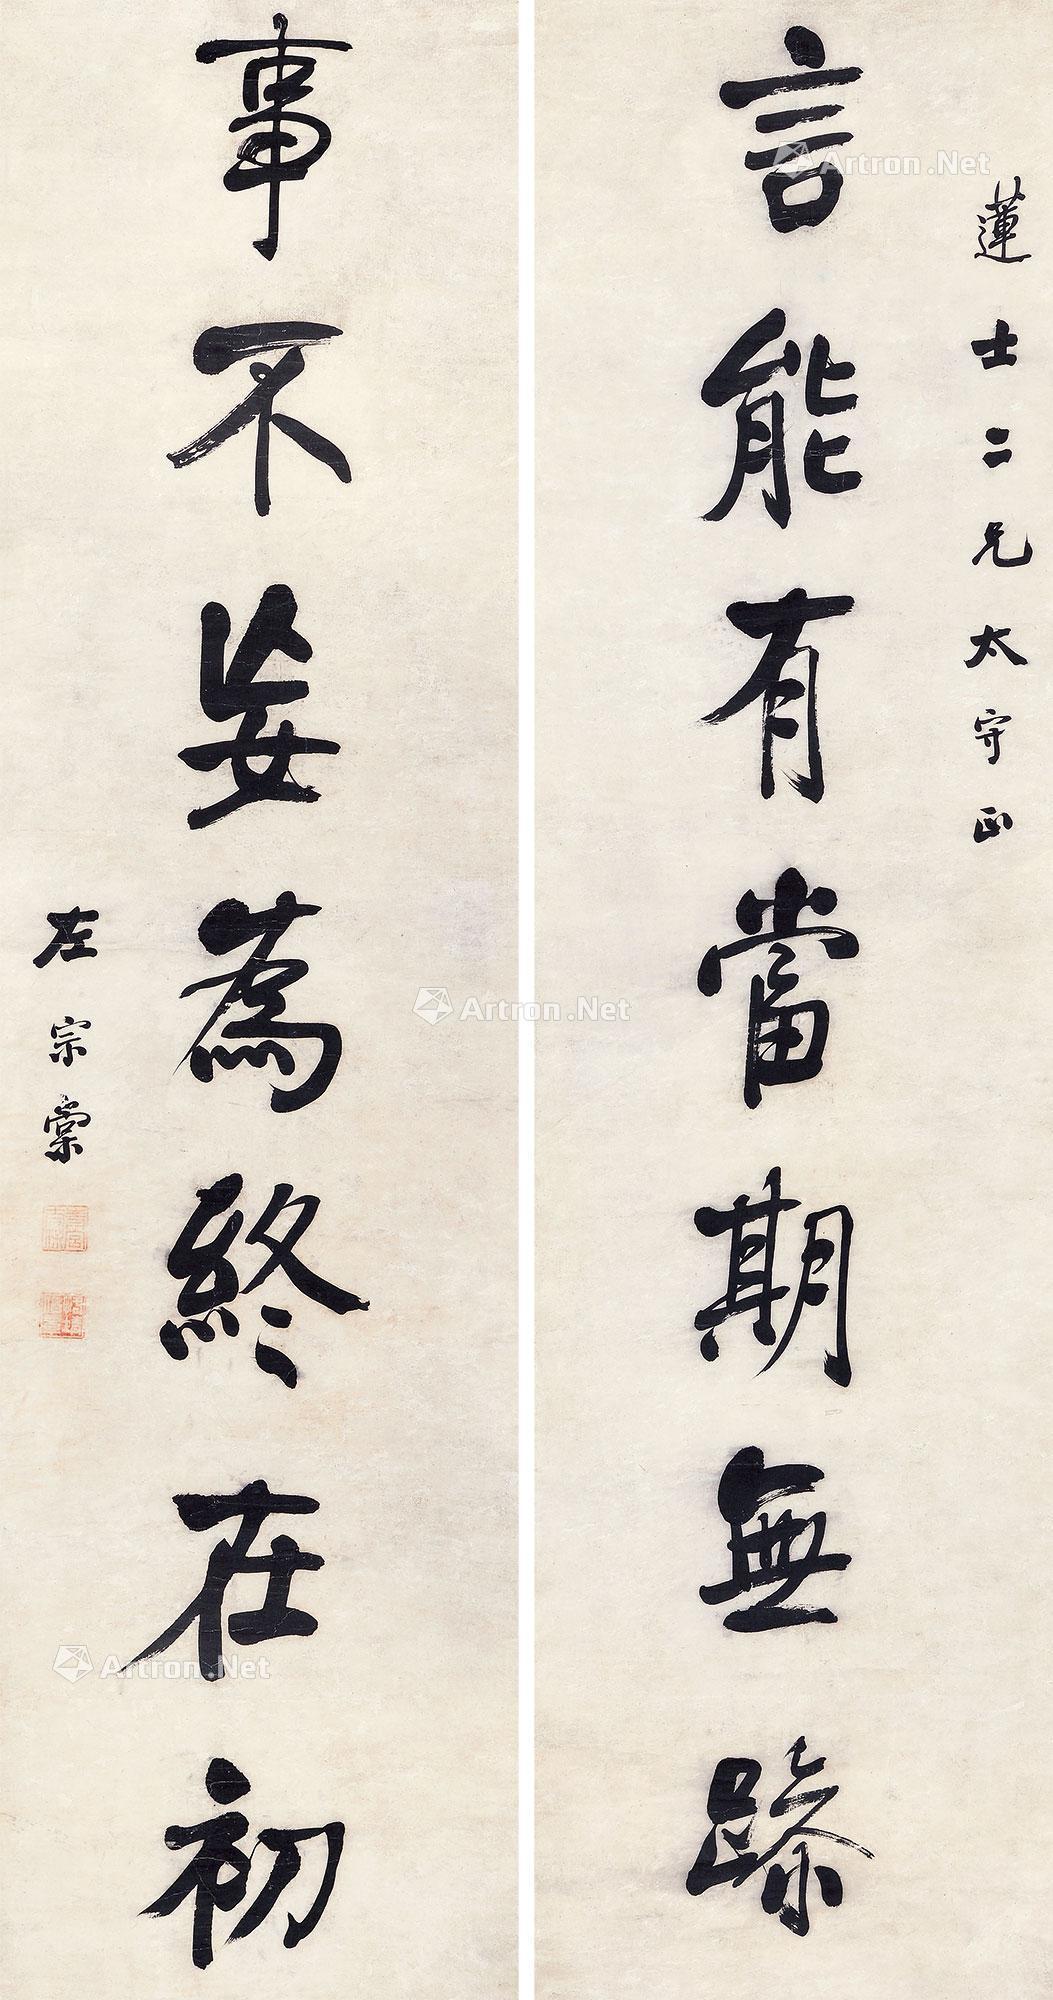 蓮士二兄太守正
言能有當期無蹂
事不妄為終在初
左宗棠
Artron.Net
Artron.Net
Artron.Net